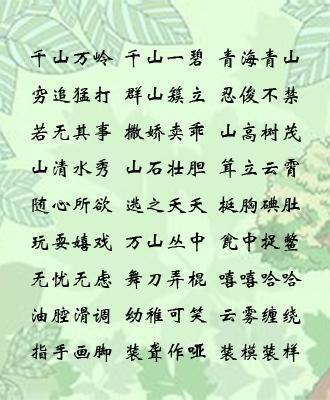 千山万岭 千山一碧 青海青山
穷追猛打 群山簇立 忍俊不禁
若无其事 撒娇卖乖 山高树茂
山清水秀 山石壮胆 耸立云霄
随心所欲 逃之夭夭 挺胸腆肚
玩耍嬉戏 万山丛中 瓮中捉鳖
无忧无虑 舞刀弄棍 嘻嘻哈哈
油腔滑调 幼稚可笑 云雾缠绕
指手画脚 装聋作哑 装模装样